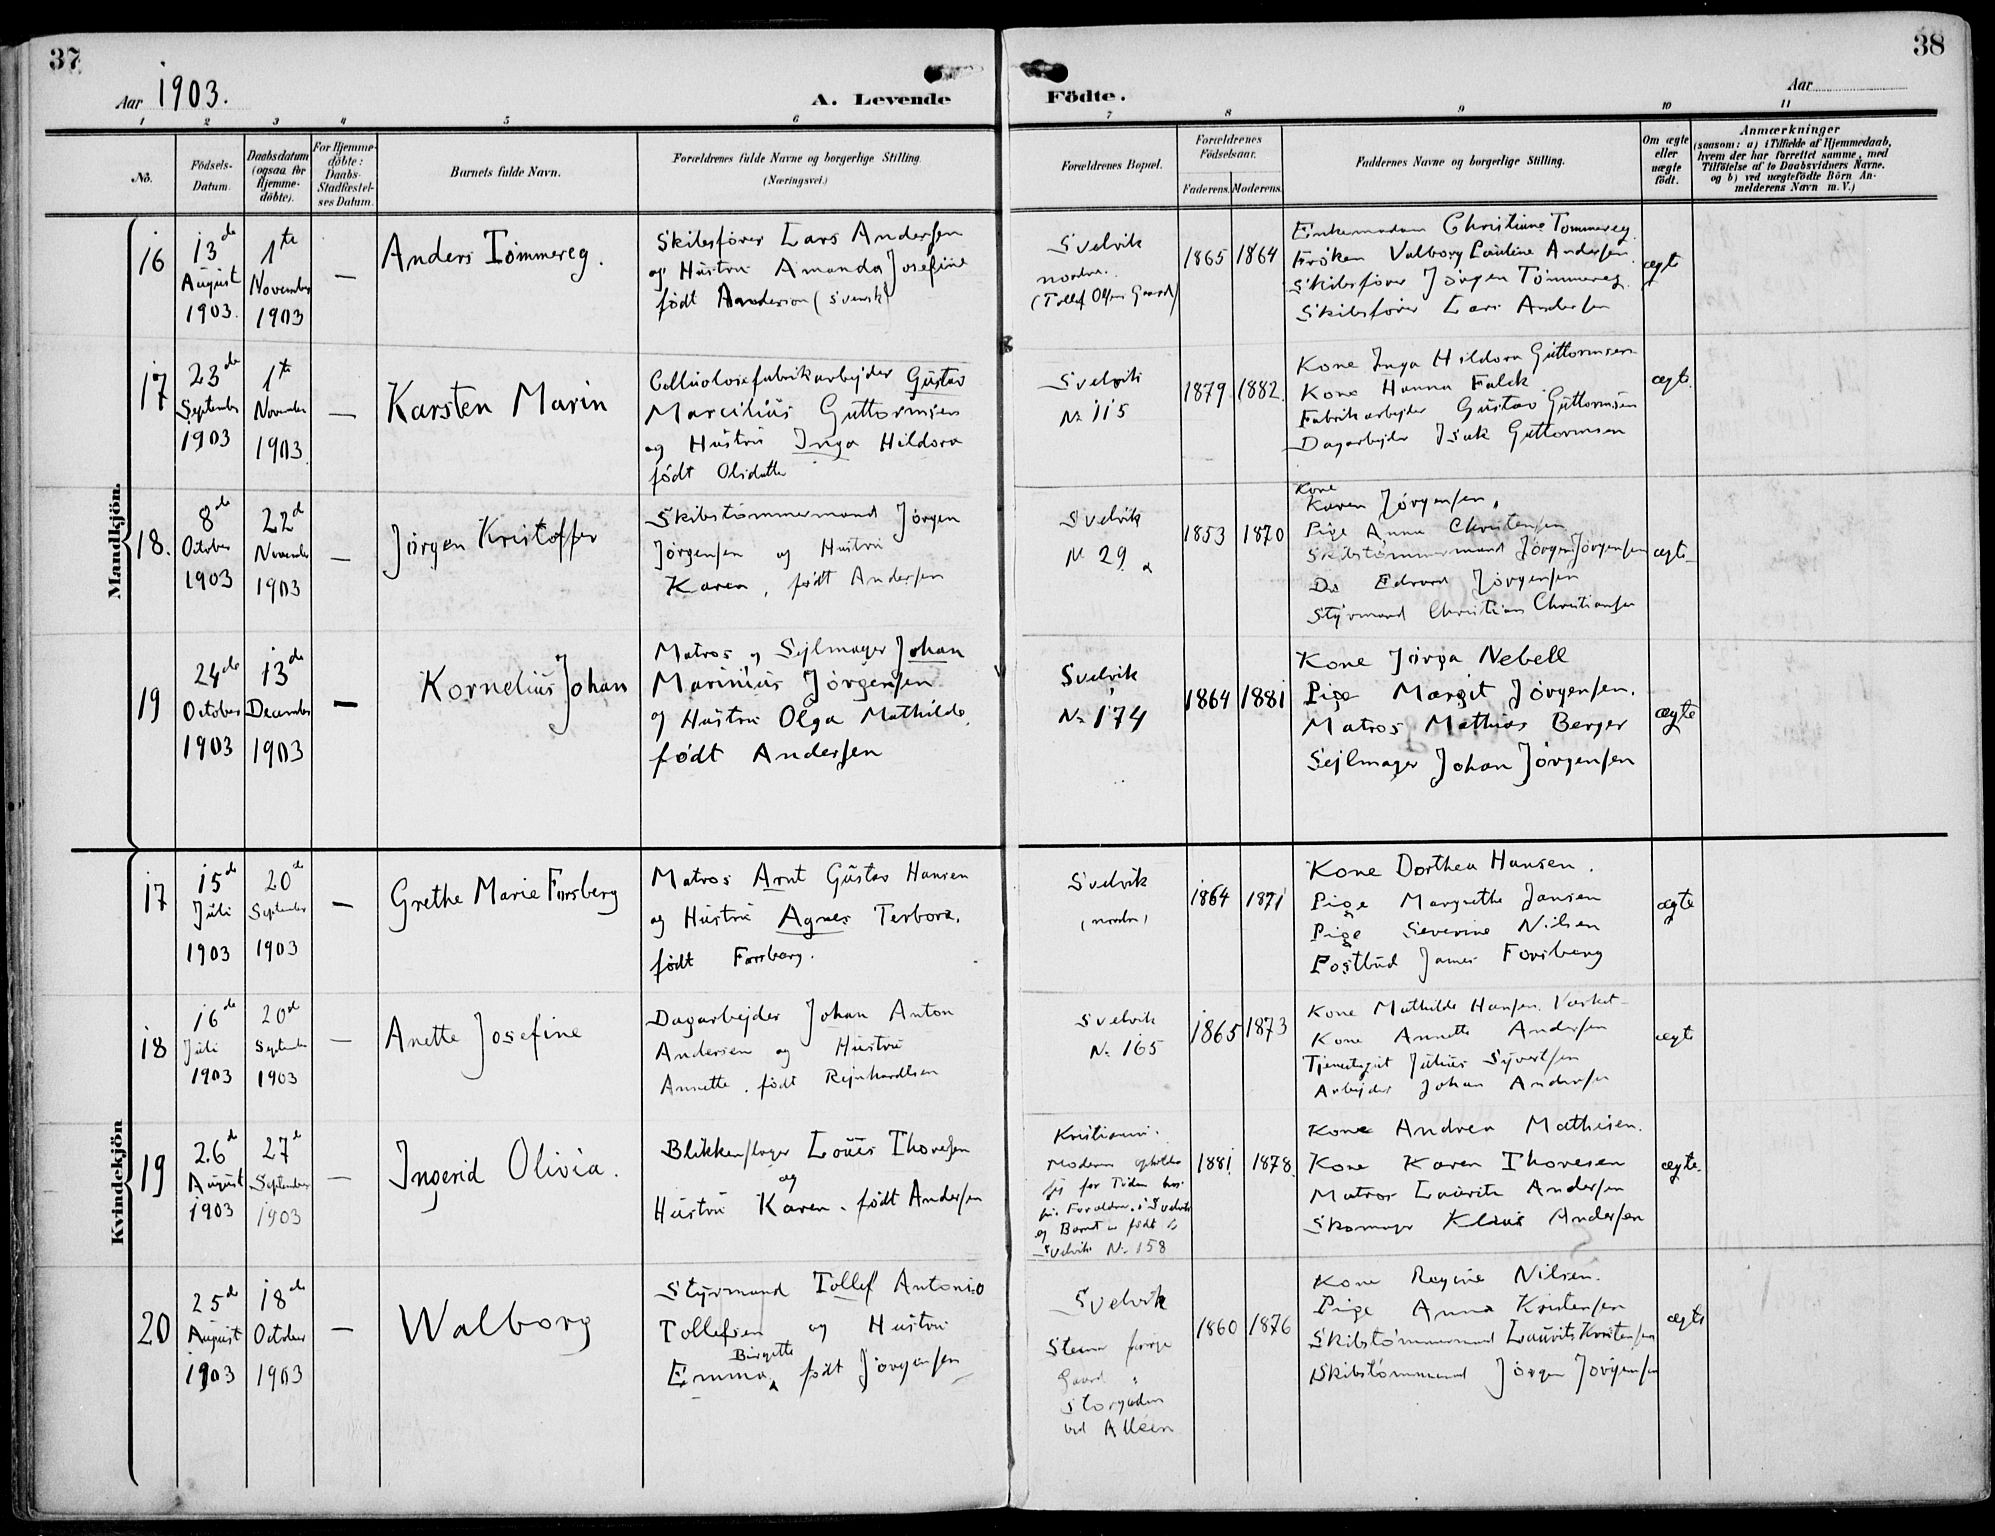 37
38
Aar 1903.
A. Levende Födte.
Aar
1 2 3 4 5 6 7 8 9 10 11
Nô.
Födsels-Datum.
Daabsdatum (ogsaa for Hjemme-döbte).
For Hjemme-döbte: Daabs-Stadfæstel-ses Datum.
Barnets fulde Navn.
Forældrenes fulde Navne og borgerlige Stilling.
(Næringsvei.)
Forældrenes Bopæl.
Forældrenes Födselsaar.
Faderens. Moderens.
Faddernes Navne og borgerlige Stilling.
Om ægte eller uægte födt.
Anmærkninger
(saasom: a) i Tilfælde af Hjemmedaab,
hvem der har forrettet samme, med
Tilföielse af to Daabsvidners Navne.
og b) ved uægtefödte Börn An-
melderens Navn m. V.)
Mandkjön.
16
13de August 1903.
1te November 1903
—
Anders Tömmereg.
Skibsfører Lars Andersen
og Hustru Amanda Josefine
født Anderson (svensk)
Svelvik
nordre.
1865 1864
Enkemadam Christiane Tømmereg.
Frøken Valborg Pauline Andersen.
Skibsfører Jørgen Tømmereg.
Skibsfører Lars Andersen
ægte
17
23de September 1903
1te November 1903.
—
Karsten Marin
Cellulosefabrikarbejder Gustav
Marcilius Guttormsen
og Hustru Inga Hildora
født Olsdatter
Svelvik
No 115
1879 1882.
Kone Inga Hildora Guttormsen
Kone Hanna Falck
Fabrikarbejder Gustav Guttormsen
Dagarbejder Isak Guttormsen
ægte.
18.
8de October 1903
22d November 1903
—
Jørgen Kristoffer
Skibstømmermand Jørgen
Jørgensen og Hustru
Karen, født Andersen
Svelvik
No 29 a
1853 1870
Kone
Karen Jørgensen,
Pige Anna Christensen
Skibstømmermand Jørgen Jørgensen
Do Edvard Jørgensen
Styrmand Christian Christiansen
ægte
19
24de October 1903
13de December 1903
—
Kornelius Johan
Matros og Sejlmager Johan
Marinius Jørgensen
og Hustru Olga Mathilde.
født Andersen
Svelvik
No 174
1864 1881
Kone Jørga Nebell
Pige Margit Jørgensen.
Matros Mathias Berger
Sejlmager Johan Jørgensen
ægte
Kvindekjön
17
15de Juli 1903
20de September 1903
—
Grethe Marie Forsberg
Matros Arnt Gustav Hansen
og Hustru Agnes Terbora.
født Forsberg.
Svelvik
(nordre)
1864 1871
Kone Dorthea Hansen.
Pige Margrethe Jansen
Pige Severine Nilsen
Postbud James Forsberg
ægte
18
16de Juli 1903
20de September 1903
—
Anette Josefine
Dagarbejder Johan Anton
Andersen og Hustru
Annette, født Rejnhardtsen
Svelvik
No 165
1865 1873
Kone Mathilde Hansen,
Kone Annette Andersen
Julius Syvertsen
Arbejder Johan Andersen
ægte
19
26de August 1903
27de September 1903
—
Ingerid Olivia.
Blikkenslager Louis Thoresen
og
Hustru Karen. født Andersen
Moderen opholder
sig for Tiden hos
Forældre i Svelvik
og Barnet er født i
Svelvik No 158
1881 1878.
Kone Andrea Mathisen.
Kone Karen Thoresen
Matros Lauritz Andersen
Skomager Klaus Andersen
ægte.
20
25de August 1903
18de October 1903
—
Walborg
Styrmand Tollef Antonio
Tollefsen og Hustru
Birgitte
Emma, født Jørgensen
Svelvik
Gaard
Storgaden
ved Alleen
1860 1876
Kone Regine Nilsen.
Pige Anna Kristensen
Skibstømmermand Laurits Kristensen
Skibstømmermand Jørgen Jørgensen
ægte